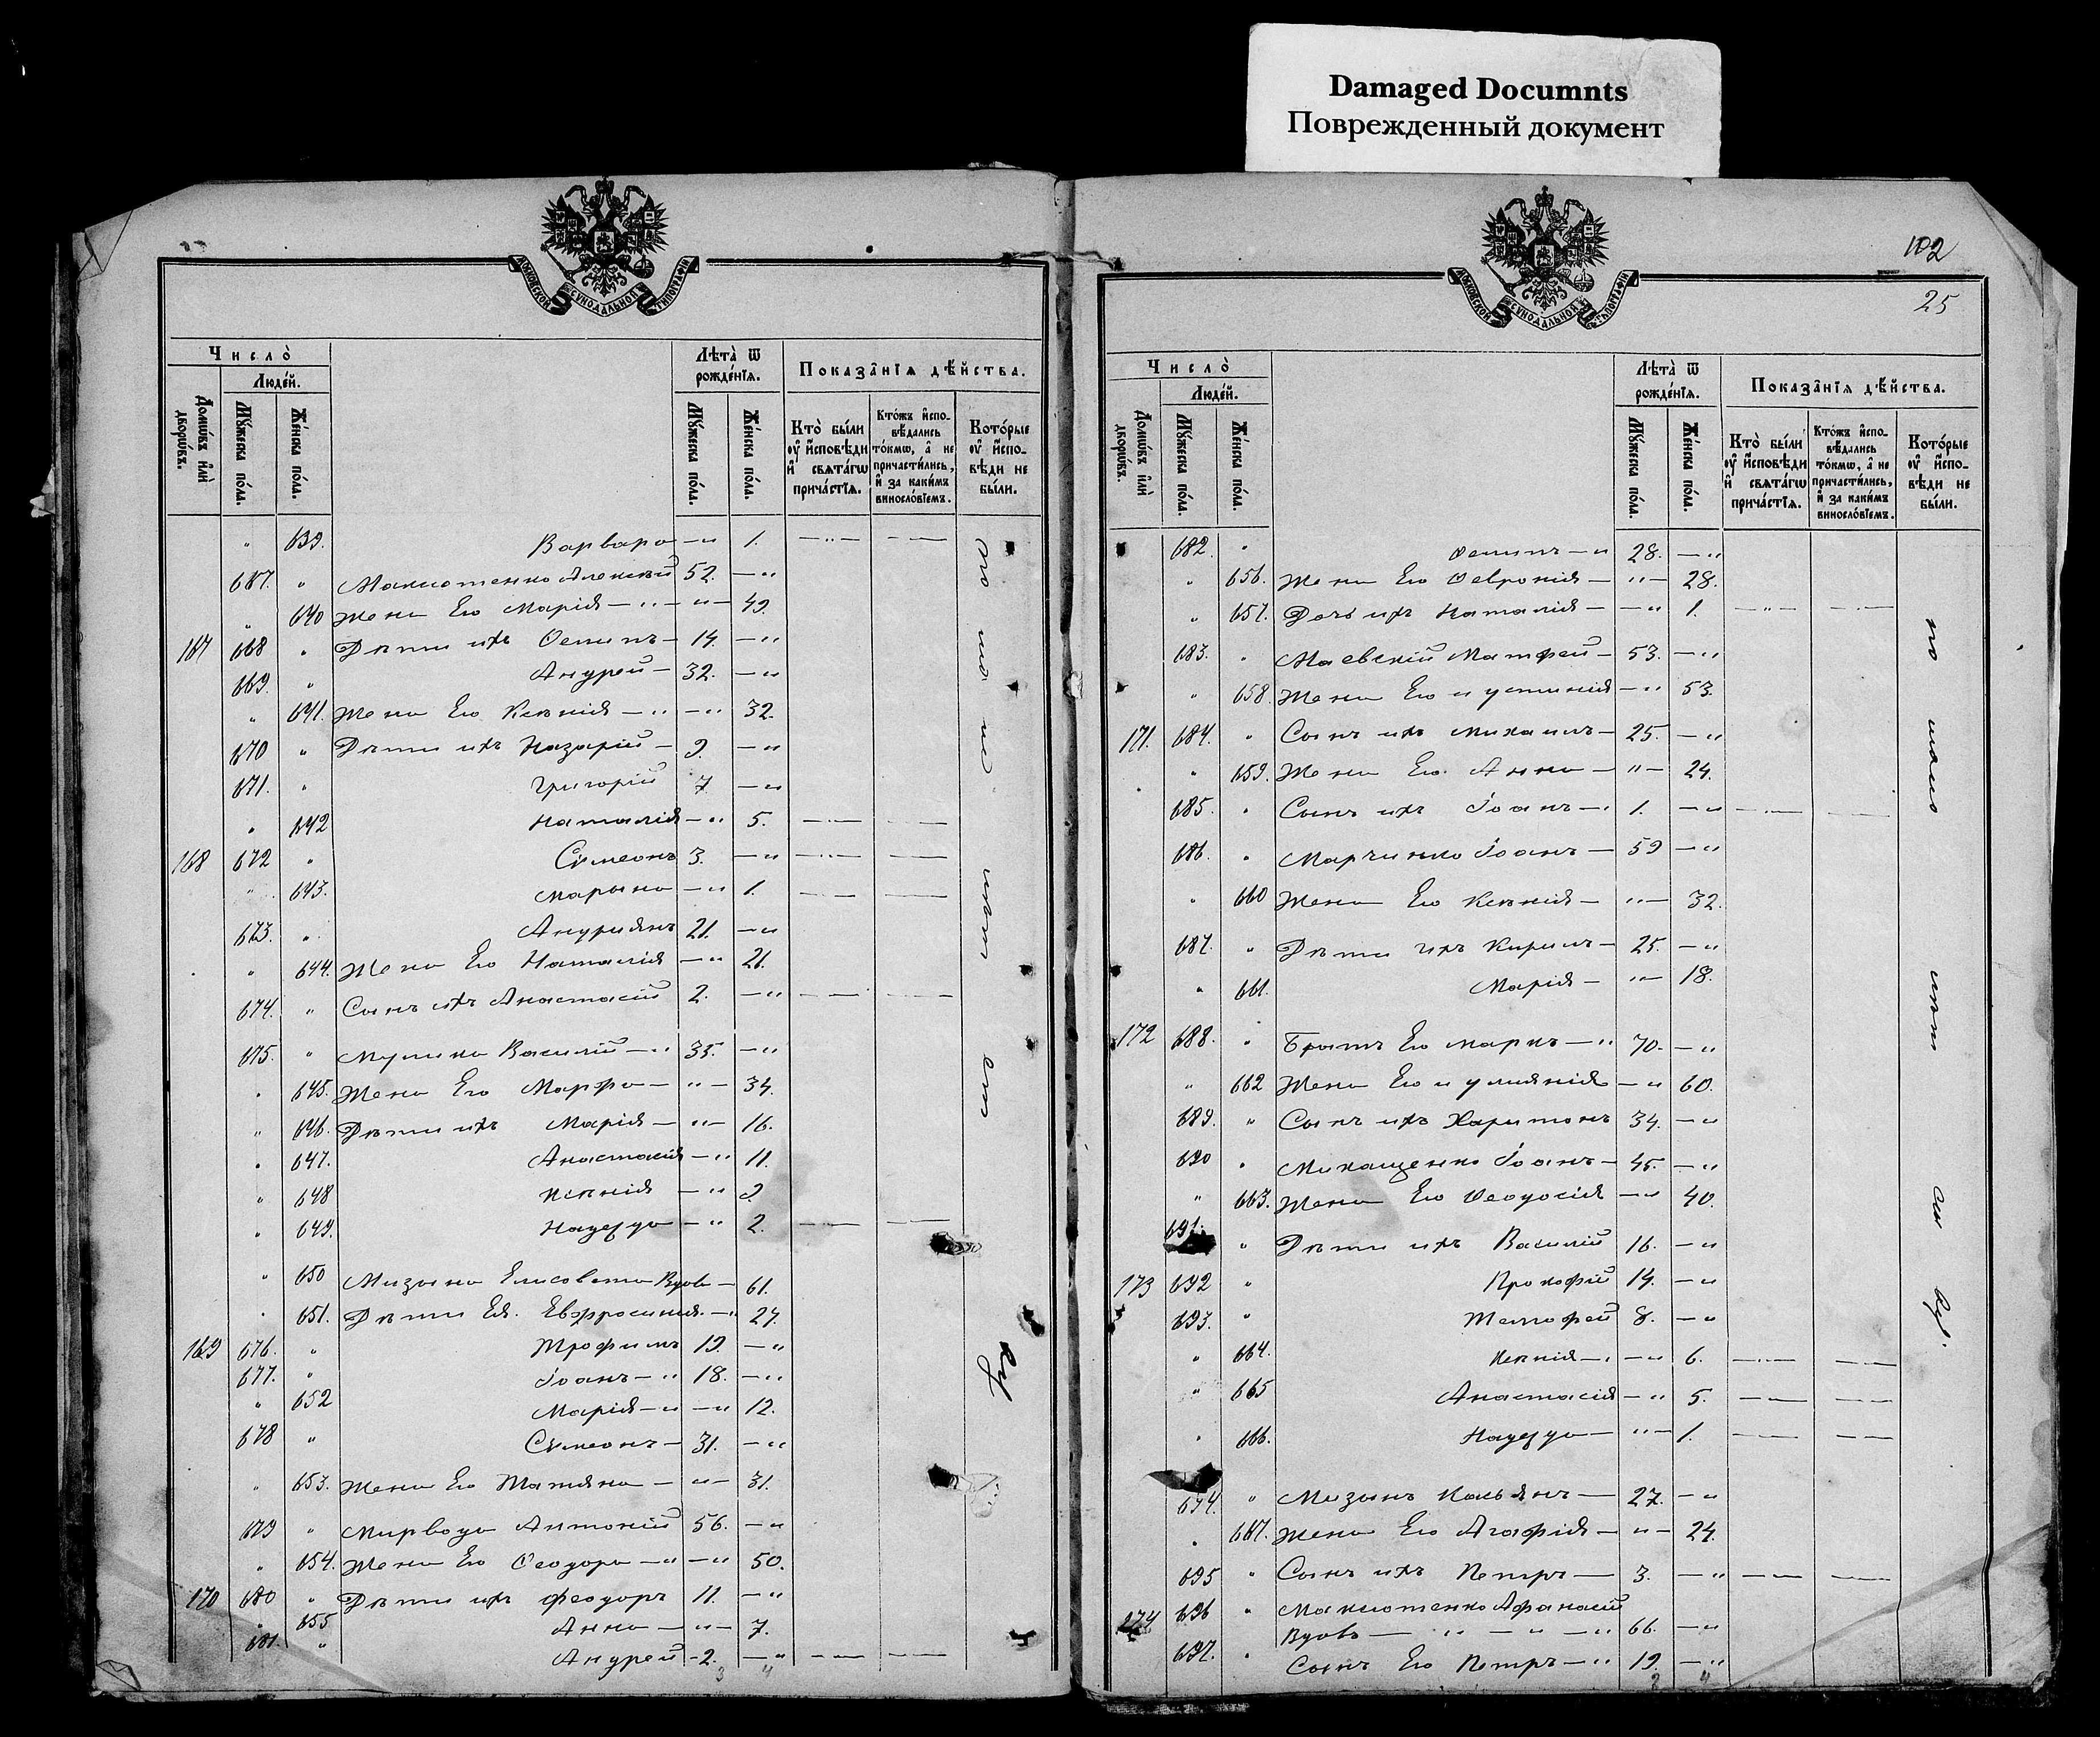 Damaged Documnts
Поврежденный документ
МОСКОВСКОЙ СѴНОДАЛЬНОЙ ТИПОГРАФІИ
Число̀
Людéй.
Домѡвъ и҆лѝ дворѡвъ.
Мꙋжеска пола.
Женска пола.
Лѣта̀ ѿ рожденїѧ.
Мꙋжеска пола.
Женска пола.
Показанїѧ дѣйства.
Кто̀ были ᲂу҆ и҆сповѣди и҆ свѧтагѡ причастїѧ.
Ктожъ и҆сповѣдались токмѡ, а҆ не причастились, и҆ за какимъ винословїемъ.
Которые ᲂу҆ и҆сповѣди не были.
" 639. Варвара — " 1.
667. " Максютенко Алексѣй 52. — "
" 640 Жена Его Марія — " — 49.
167 668 " Дѣти ихъ Осипъ — 14. — "
669. " Андрей — 32. — "
" 641. Жена Его Ксенія — " — 32.
670 " Дѣти ихъ Назарій — 9. — "
671. " Григорій 7 — "
" 642 Наталія — " 5.
168 672 " Сѵмеонъ 3. — "
" 643. Марына — " 1.
673. " Андриянъ 21. — "
" 644. Жена Его Наталія — " 21.
674. " Сынъ ихъ Анастасій 2. — "
675. " Василій — " 35. — "
" 645. Жена Его Марфа — " — 34.
" 646. Дѣти ихъ Марія — " — 16.
" 647. Анастасія — " 11.
" 648 Ксенія — " 9.
" 649. Надежда — " 2.
" 650 Мизына Елисовета Вдова — 61.
" 651. Дѣти Ея. Евфросинія — " 27.
169 676. " Трофимъ 19. — "
677. " Іоанъ — " 18. — "
" 652 Марія — " — " 12.
678 " Сѵмеонъ — 31. — "
" 653. Жена Его Татяна — " — 31.
679 " Мирвода Антоній 56. — "
" 654. Жена Его Ѳеодора — " — " 50.
170 680 " Дѣти ихъ Феодоръ 11. — "
" 655 Анна — " — 7.
681. " Андрей — 2. — "
3 4
102
25
МОСКОВСКОЙ СѴНОДАЛЬНОЙ ТИПОГРАФІИ
Число̀
Людéй.
Домѡвъ и҆лѝ дворѡвъ.
Мꙋжеска пола.
Женска пола.
Лѣта̀ ѿ рожденїѧ.
Мꙋжеска пола.
Женска пола.
Показанїѧ дѣйства.
Кто̀ были ᲂу҆ и҆сповѣди и҆ свѧтагѡ причастїѧ.
Ктожъ и҆сповѣдались токмѡ, а҆ не причастились, и҆ за какимъ винословїемъ.
Которые ᲂу҆ и҆сповѣди не были.
682. " Осипъ — " 28. — "
" 656. Жена Его Ѳевронія — " — 28.
" 657. Дочь ихъ Наталія — — " 1.
683. " Маевскій Матфей — 53. — "
" 658 Жена Его Иустинія — " 53.
171. 684. " Сынъ ихъ Михаилъ — 25. — "
" 659. Жена Его Анна — " — 24.
685. " Сынъ ихъ Іоанъ — " 1. — "
686. " Марченко Іоанъ — 59 — "
" 660 Жена Его Ксенія — " — 32.
687. " Дѣти ихъ Кирилъ — 25. — "
" 661. Марія — " — 18.
172 688. " Братъ Его Маркъ — " 70. — "
" 662 Жена Его Иулиянія — " 60.
689. " Сынъ ихъ Харитонъ 34. — "
690 " Микащенко Іоанъ — 45. — "
" 663. Жена Его Ѳеодосія — " 40.
691. " Дѣти ихъ Василій 16. — "
173 692 " Прокофій 14. — "
693. " Тимофей 8. — "
" 664. Ксенія — " — " 6.
" 665 Анастасія — " 5.
" 666. Надежда — " — 1.
694. " Мизынъ Касьянъ — 27. — "
" 667. Жена Его Агафія — " — 24.
695 " Сынъ ихъ Петръ — 3. — "
174 696 " Максютенко Афанасій
Вдовъ — " — " — " 66. — "
697. " Сынъ Его Петръ — " 19. — "
2 4